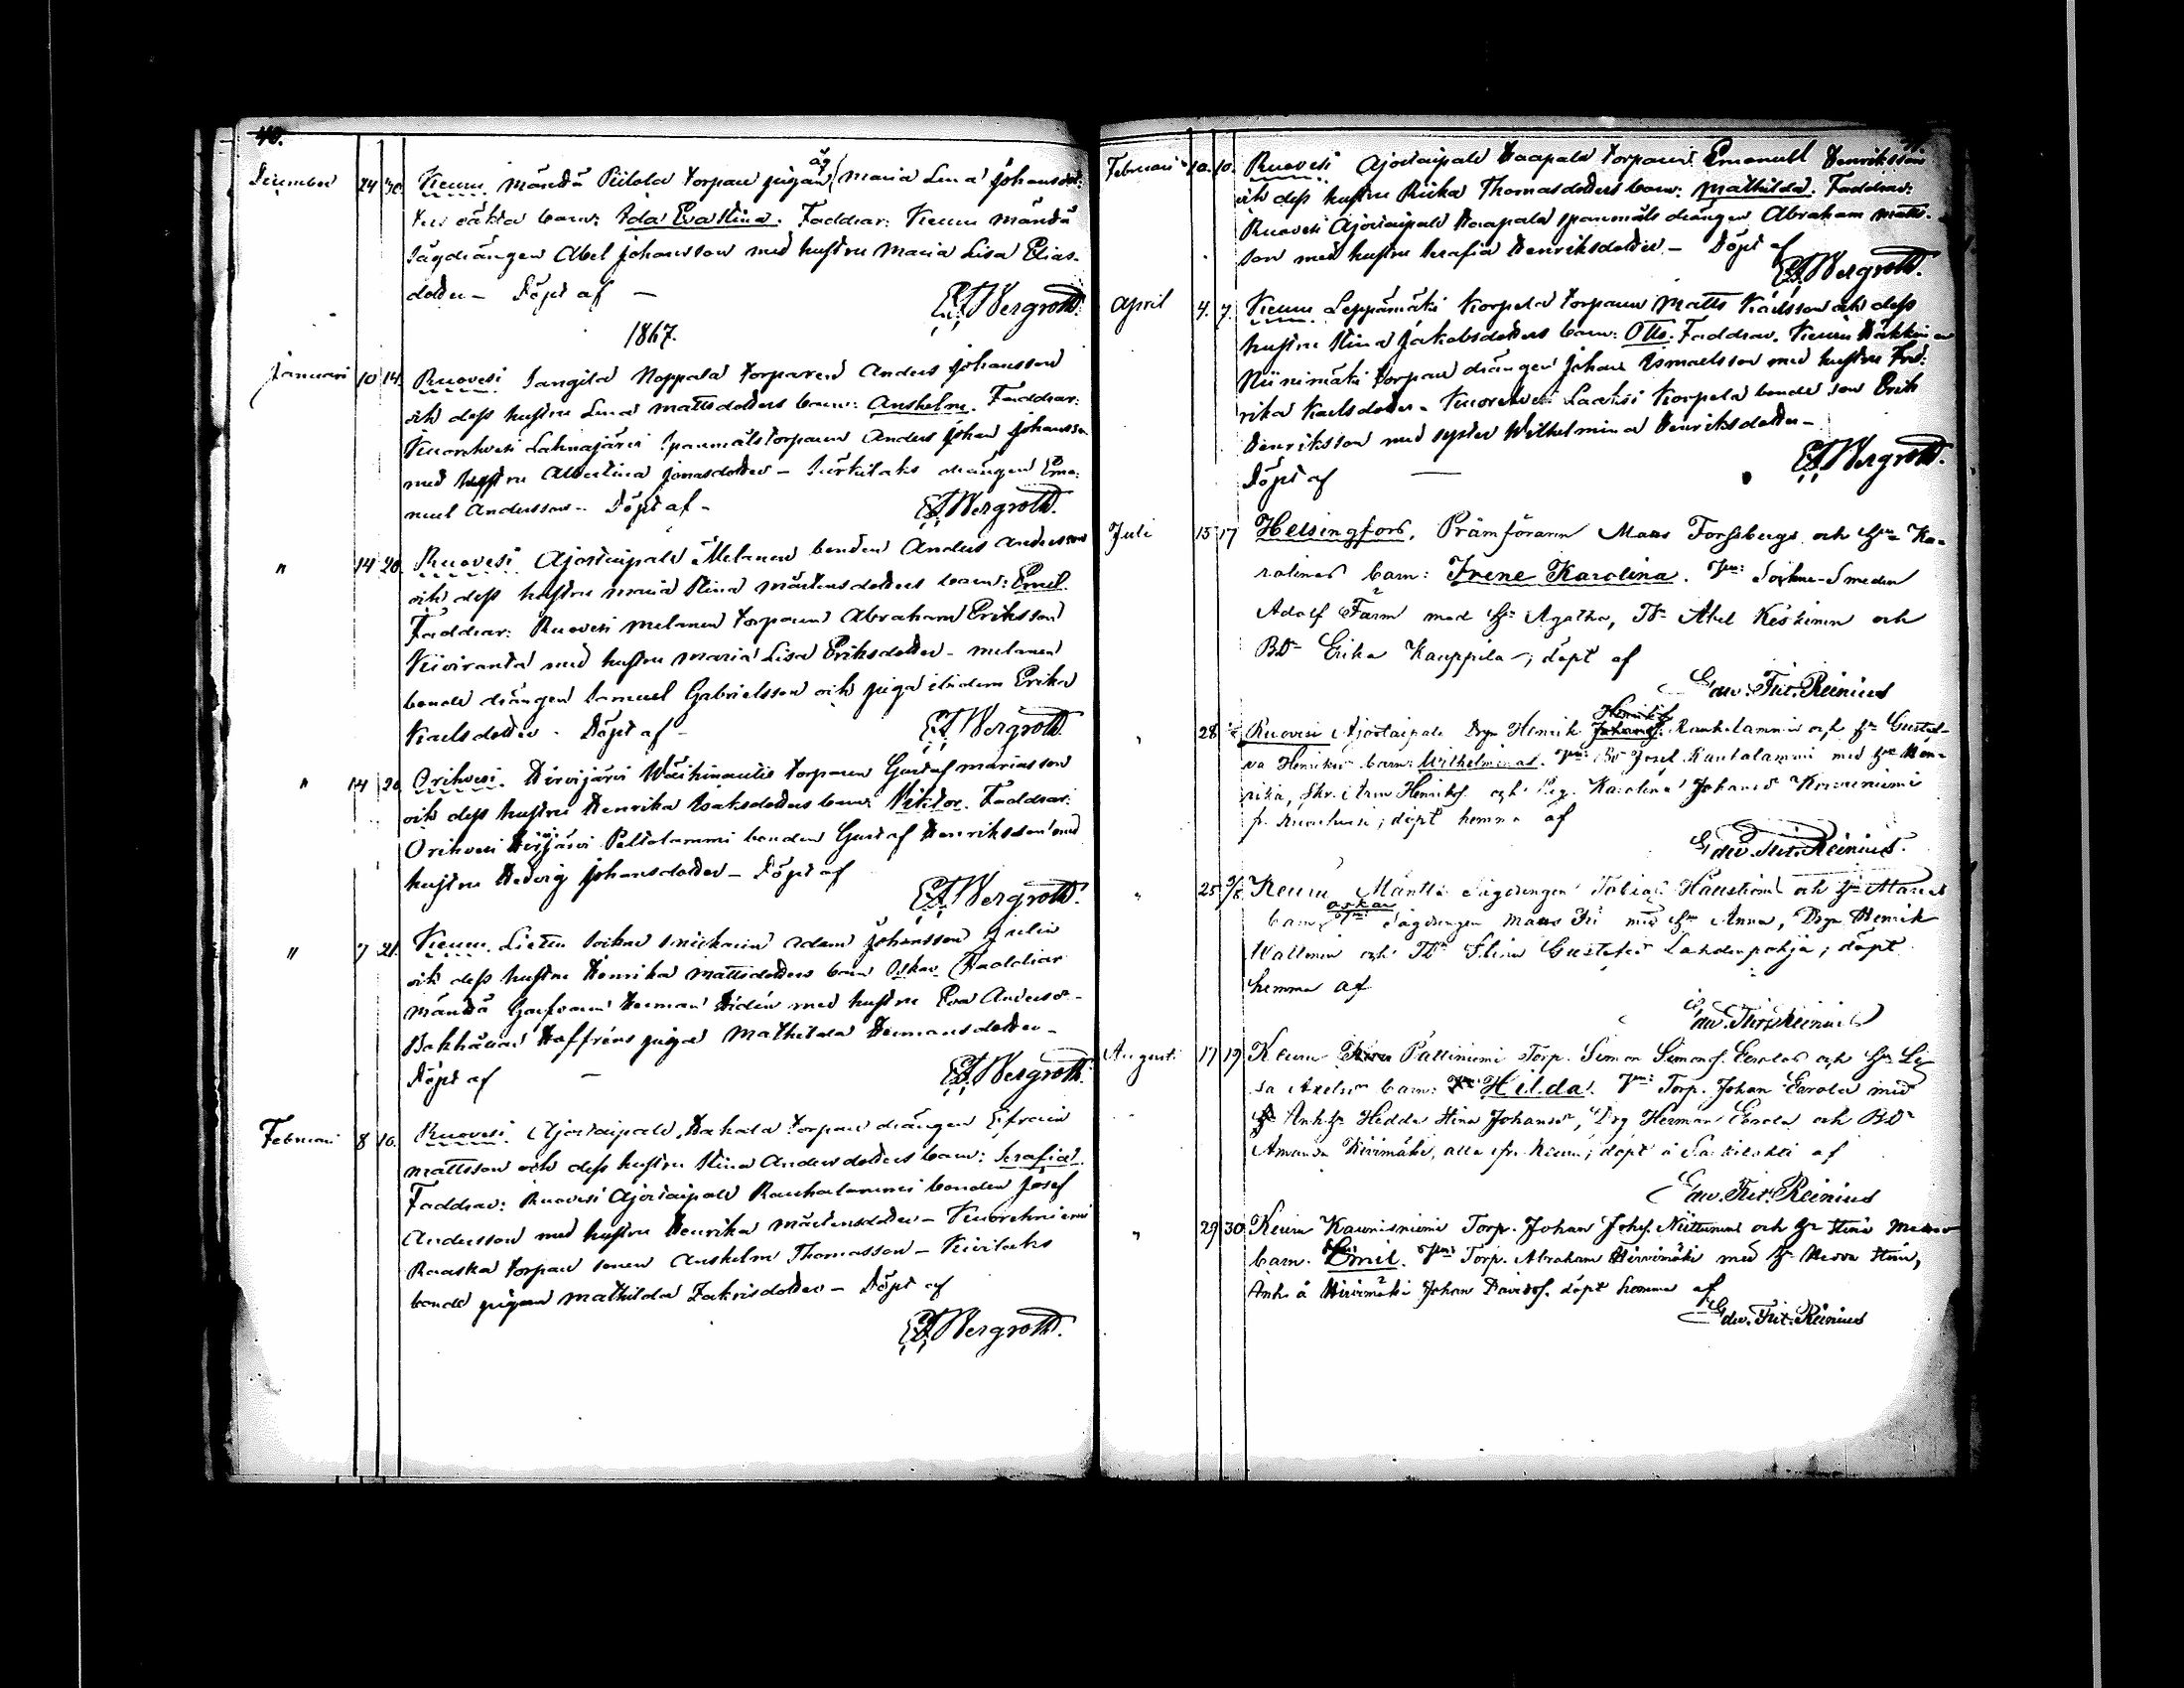 40.
December 24 30. Keuru Mändä Piilola torpare pigan äg Maria Lena Johansdot-
ters oäkta barn: Ida Eva Stina. Faddrar: Keuru Mändä
sågdrängen Abel Johansson med hustru Maria Lisa Elias-
dotter – Döpt af – E.A. Bergroth.
1867.
Januari 10 14. Ruovesi Noppala torparen Anders Johansson
och dess hustru Lena Mattsdotters barn: Anshelm. Faddrar:
Kuorehvesi Lahnajärvi spanmålstorparen Anders Johan Johansson
med hustru Albertina Jonasdotter – drängen Ema-
nuel Andersson – Döpt af – Bergroth.
" 14 20. Ruovesi Ajostaipale Melanen bonden Anders Andersson
och dess hustru Maria Stina Mårtensdotters barn: Emil.
Faddrar: Ruovesi Melanen torparen Abraham Eriksson
Kiviranta med hustru Maria Lisa Eriksdotter – Melanen
bonde drängen Samuel Gabrielsson och piga ibidem Erika
Karlsdotter – Döpt af – Bergroth.
" 14 20. Orihvesi. Hirvijärvi torparen Gustaf Mariasson
och dess hustru Henrika Isaksdotters barn: Viktor. Faddrar:
Orihvesi Hirvijärvi Peltolammi bonden Gustaf Henriksson med
hustru Hedvig Johansdotter – Döpt af
Bergroth.
" 7 21. Keuru. Adam Johansson
och dess hustru Henrika Mattsdotters barn Oskar. Faddrar
Mändä Herman Hidén med hustru Eva Anders-
piga Mathilda Hermansdotter –
Döpt af – Bergroth.
Februari 8 10. Ruovesi. Ajostaipale, Hakala torpare drängen Efraim
Mattsson och dess hustru Stina Andersdotters barn: Serafia.
Faddrar: Ruovesi Ajostaipale Rauhalammi bonden Josef
Andersson med hustru Henrika Mårtensdotter – Kuorehniemi
Raaska torpare sonen Anshelm Thomasson – Kivilaks
bonde pigan Mathilda Zakrisdotter – Döpt af
Bergroth.
Februari 10. 10. Ruovesi Ajostaipale Haapala torparen Emanuel Henriksson
och dess hustru Riika Thomasdotters barn: Mathilda. Faddrar:
Ruovesi Ajostaipale Haapala spanmåls drängen Abraham Matts-
son med hustru Serafia Henriksdotter – Döpt af
Bergroth.
April 4. 7. Keuru Leppämäki Korpela torparen Matts Karlsson och dess
hustru Stina Jakobsdotters barn: Otto. Faddrar. Keuru
Niinimäki torpare drängen Johan Ismaelsson med hustru Fred-
rika Karlsdotter – Kuorehvesi Laaksi Korpela bonde son Erik
Henriksson med syster Wilhelmina Henriksdotter –
Döpt af – Bergroth.
Juli 15 17 Helsingfors. Pråmföraren Maas Forssbergs och Hu Ka-
rolinas barn: Irene Karolina. Sockne-Smeden
Adolf Färm med Hu Agatha, Abel Keskinen och
BD Erika Kauppila –; döpt af
Edv. Frit. Reinius
" 28 Ruovesi Ajostaipale Drgn Henrik Henriksf. Rauhalammi och Hu Gusta-
va Henriks barn: Wilhelmina. Josef Rauhalammi med Hu Hen-
rika, Adam Henriksf. och Pig. Karolina Johansd
fr. Kuorehvesi; döpt hemma af
Edv. Frit. Reinius.
" 25 Keuru Mänttä sågdrängen Tobias och Hu Marias
barn, Oskar. Sågdrängen Maas med Hu Anna, Drgn Henrik
Wallenin och Gustafsd Lahdenpohja; döpt
hemma af
Edv. Frit. Reinius
Augusti 17 19 Keuru Palliniemi Torp. Simon Simonsf. Eerolas och Hu Li-
sa Axelsns barn: Hilda. Torp. Johan Eerola med
Enkhu Hedda Stina Johansd, Drg Herman Eerola och BD
Amanda Kivimäki, alla fr. Keuru; döpt å af
Edv. Frit. Reinius
" 29 30 Keuru Kaunisniemi Torp. Johan Johsf. Niittunens och Hu Stina
barn. Emil. Torp. Abraham Hirvimäki med Hu Stina,
å Hirvimäki Johan Davidsf. döpt hemma af
Edv. Frit. Reinius